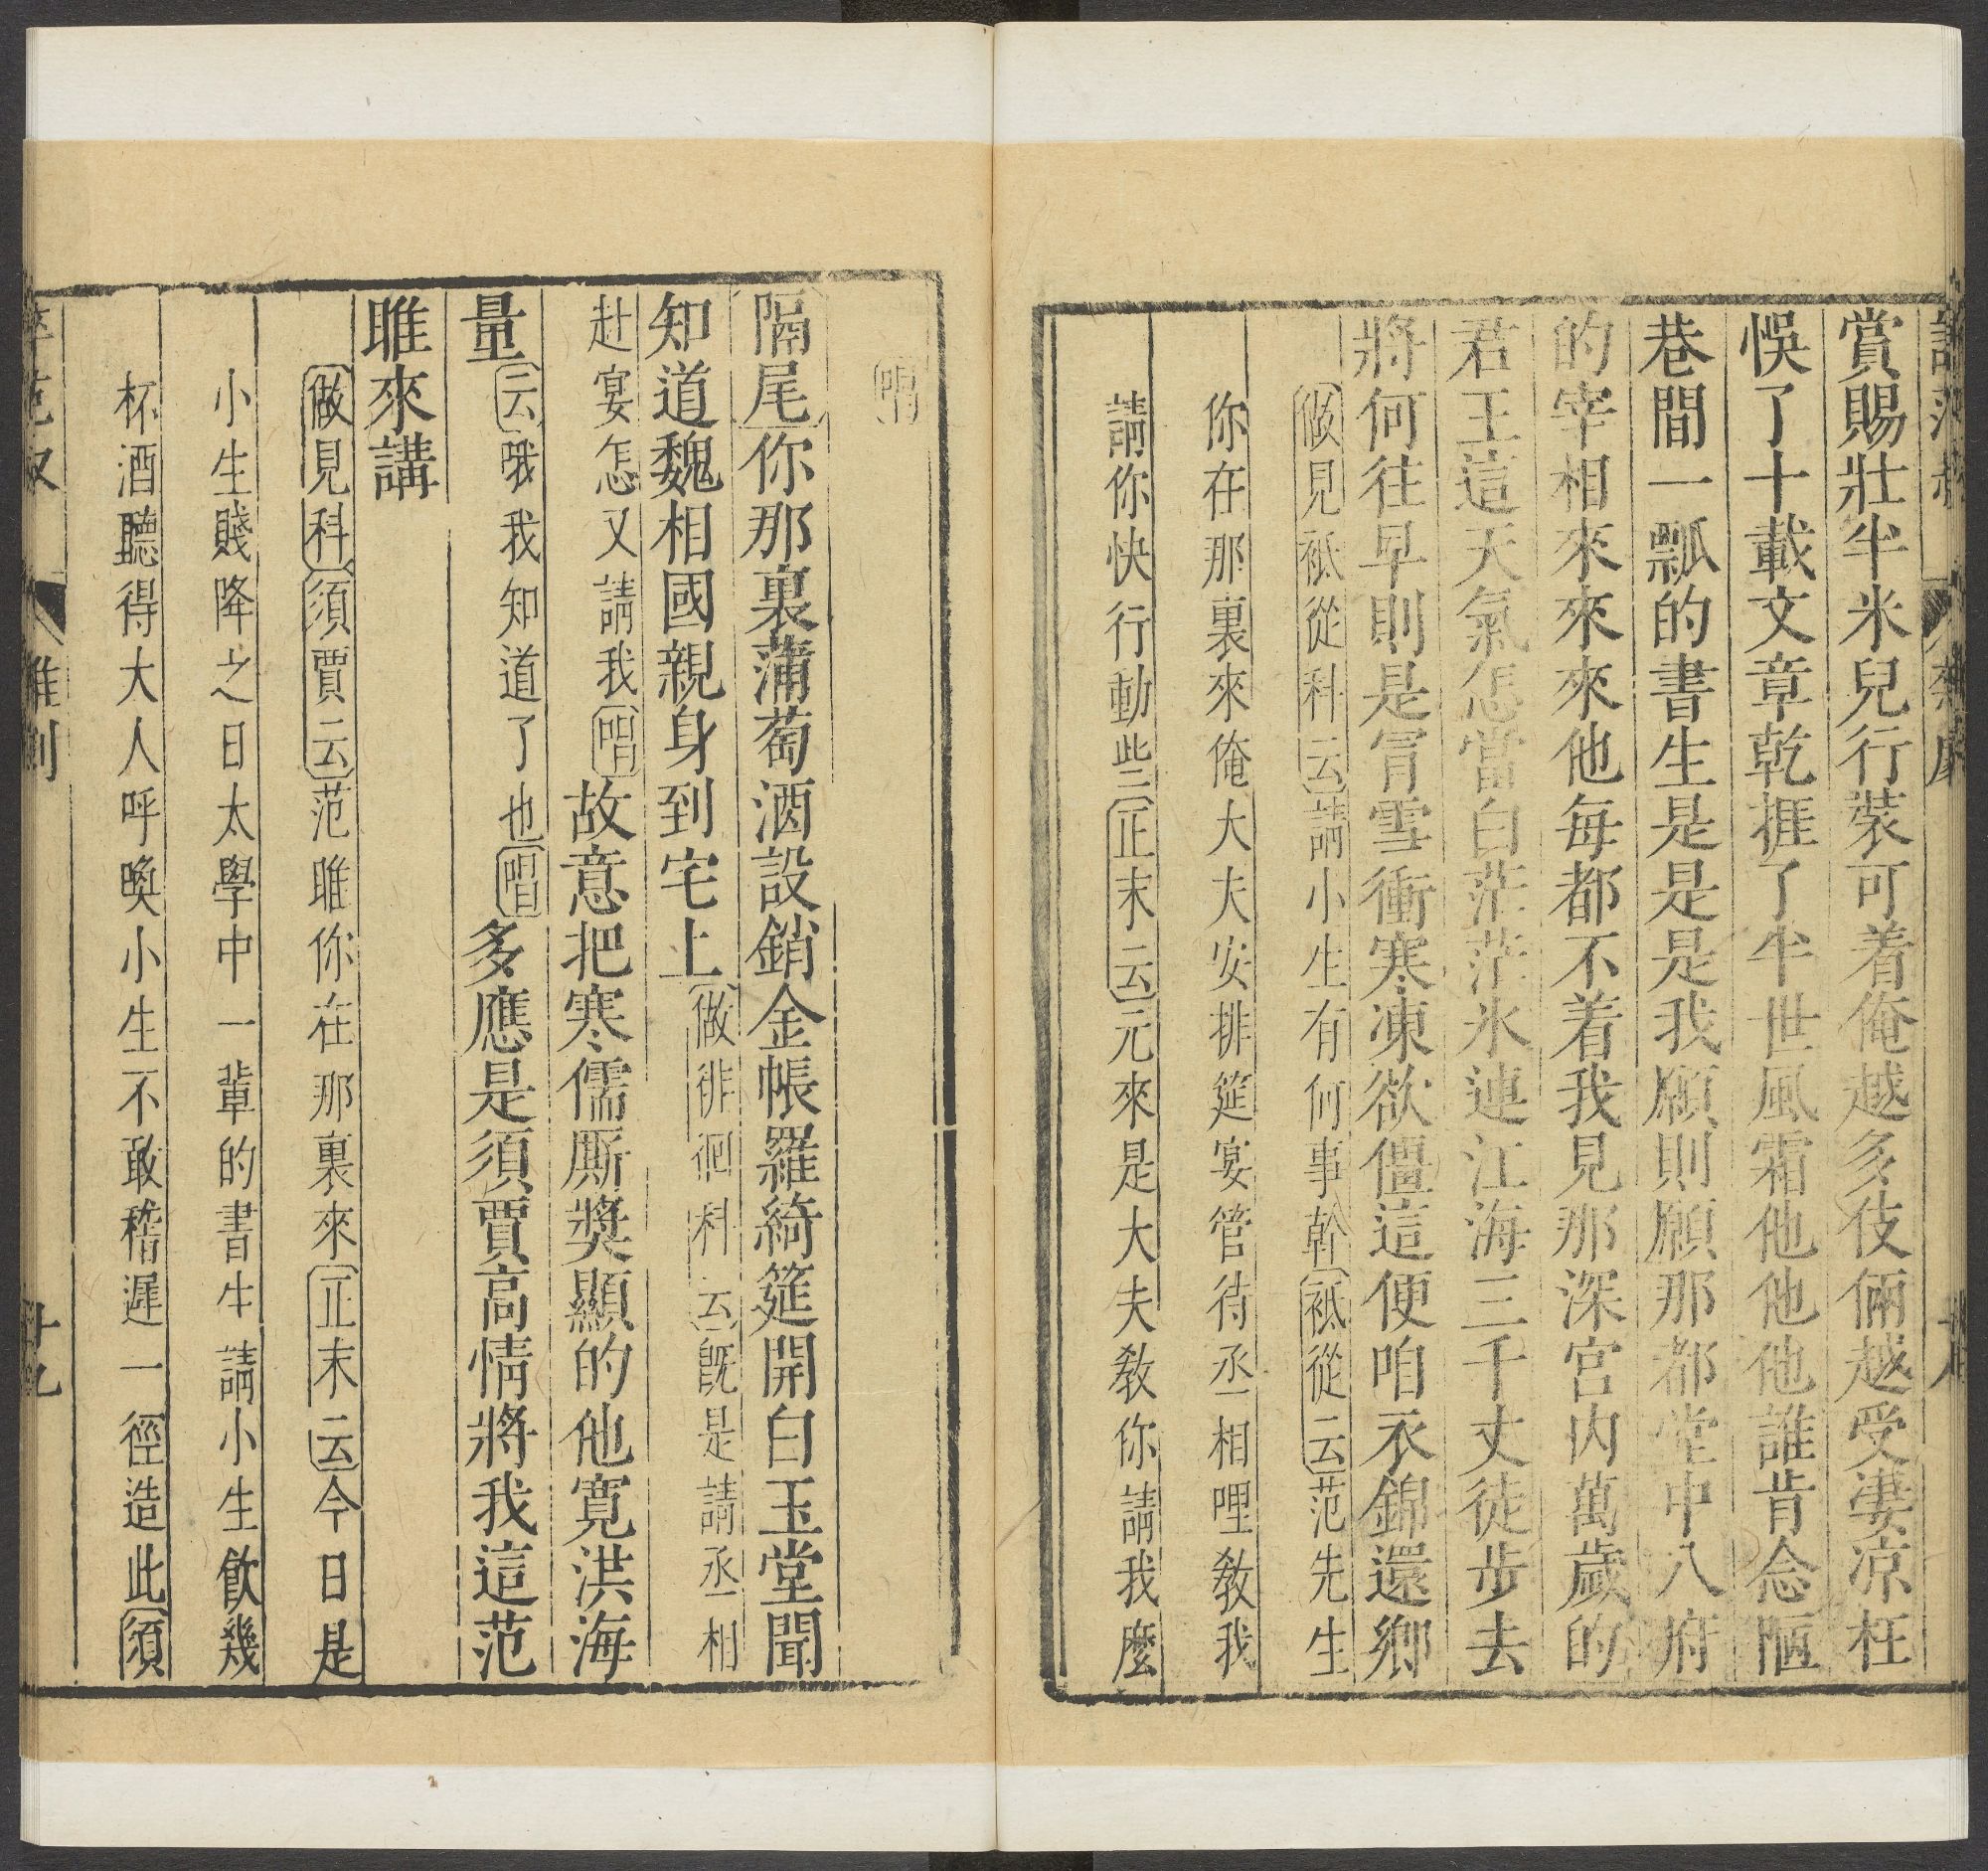 賞賜壯半米兒行裝可着俺越多伎倆越受凄凉枉
悞了十載文章乾捱了半世風霜他他他誰肯念陋
巷間一瓢的書生是是是我願則願那都堂中八府
的宰相來來來他每都不着我見那深宮内萬歲的
君王這天氣怎當白茫茫氷連江海三千丈徒步去
將何往早則是冐雪衝寒凍欲僵這便咱衣錦還鄉
做見袛從科云請小生有何事幹袛從云范先生
你在那裏來俺大夫安排筵宴管待丞相哩教我
請你快行動些正末云元來是大夫教你請我麽
唱
隔尾你那裏蒲萄酒設銷金帳羅綺筵開白玉堂聞
知道魏相國親身到宅上做徘徊科云既是請丞相
赴宴怎又請我唱故意把寒儒厮奬顯的他寛洪海
量云哦我知道了也唱多應是須賈高情將我這范
雎來講
做見科須賈云范雎你在那裏來正末云今日是
小生賤降之日太學中一輩的書生請小生飲幾
杯酒聽得大人呼喚小生不敢稽遲一徑造此須